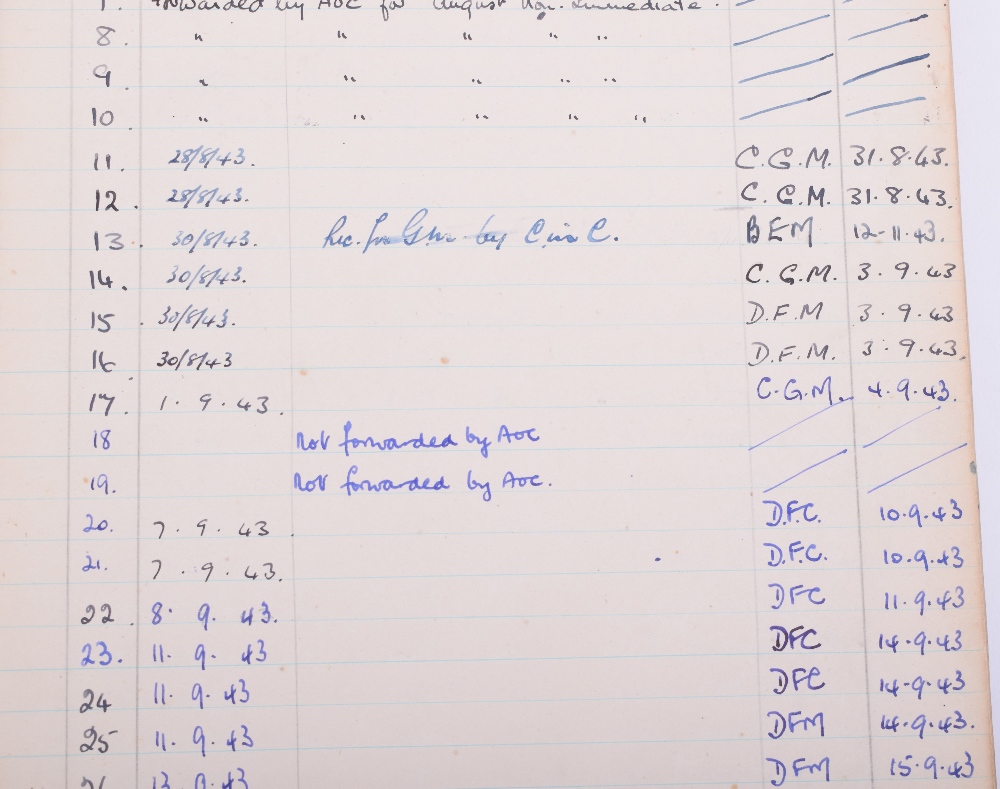 forwarded by AOC for August Non. Immediate.
8. " " " " "
9. " " " " "
10. " " " " "
11. 28/8/43. C.G.M. 31.8.43.
12. 28/8/43. C.G.M. 31.8.43.
13. 30/8/43. Rec. for G.M. by C in C. BEM 12-11-43.
14. 30/8/43. C.G.M. 3.9.43
15. 30/8/43. D.F.M 3.9.43
16 30/8/43 D.F.M. 3.9.43.
17. 1.9.43. C.G.M. 4.9.43.
18 Not forwarded by AOC
19. Not forwarded by AOC.
20. 7.9.43. D.F.C. 10.9.43
21. 7.9.43. D.F.C. 10.9.43
22. 8.9.43. DFC 11.9.43
23. 11.9.43 DFC 14.9.43
24 11.9.43 DFC 14-9.43
25 11.9.43 DFM 14.9.43.
DFM 15.9.43